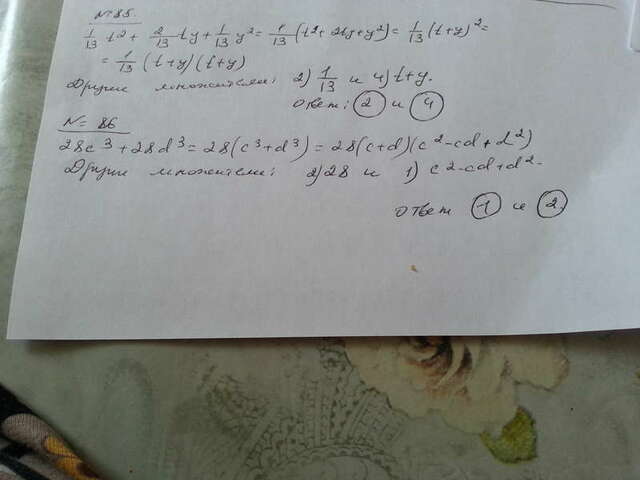 № 85.
1/13 t² + 2/13 ty + 1/13 y² = 1/13 (t² + 2ty + y²) = 1/13 (t + y)² =
= 1/13 (t + y)(t + y)
Другие множители: 2) 1/13 и 4) t + y.
Ответ: 2 и 4
N = 86
28c³ + 28d³ = 28(c³ + d³) = 28(c + d)(c² - cd + d²)
Другие множители: 2) 28 и 1) c² - cd + d² -
Ответ 1 и 2.